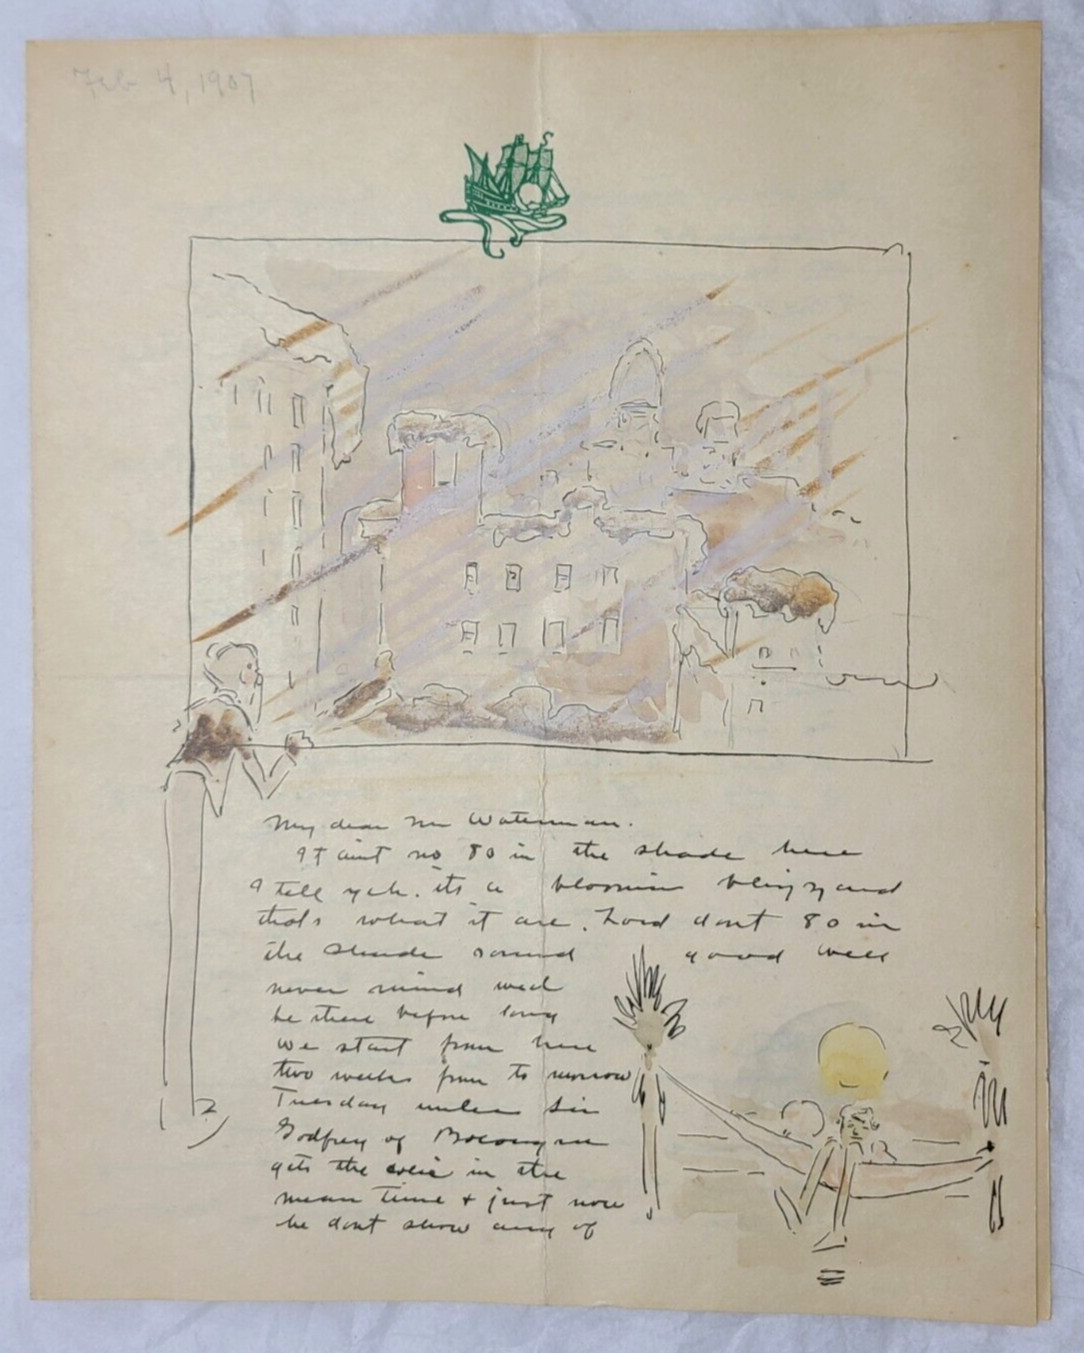 Feb 4, 1907
My dear Mr Waterman.
It aint no 80 in the shade here
I tell yeh. its a bloomin blizzard
thats what it are. Lord dont 80 in
the shade sound good well
never mind well
be there before long
We start from here
two weeks from to morrow
Tuesday unless Sir
Godfrey of
gets the coin in the
mean time & just now
he dont show any of